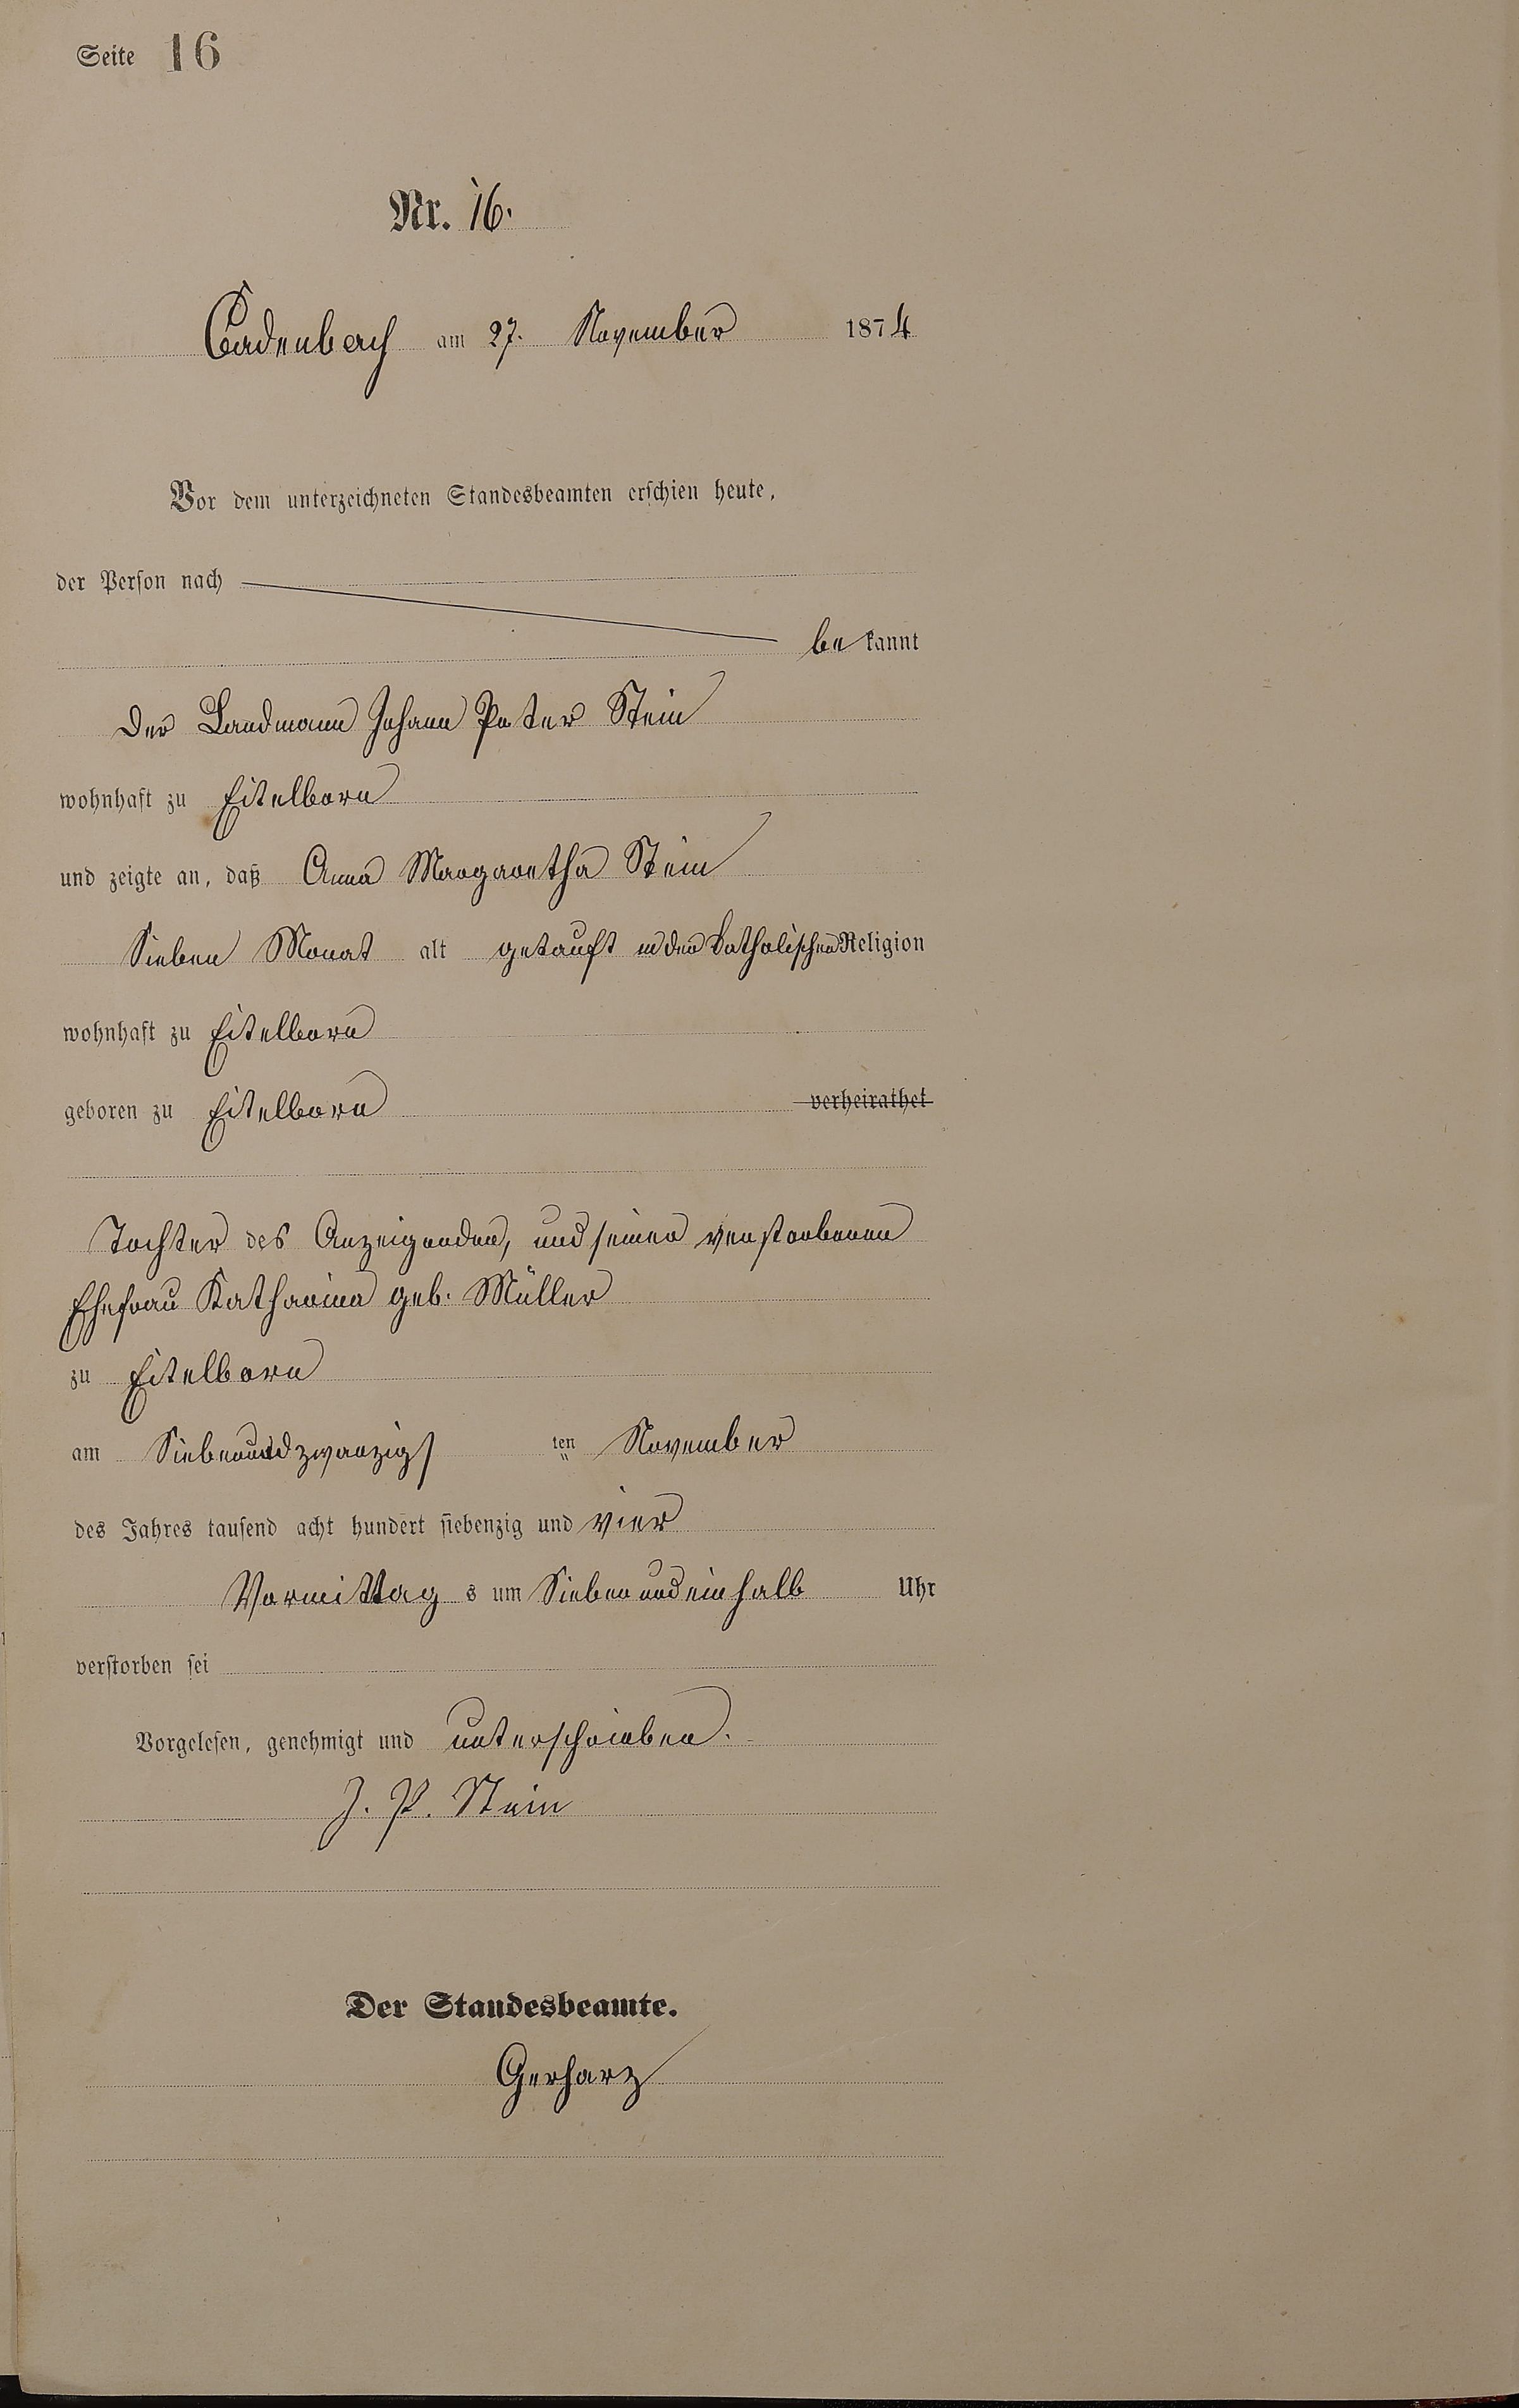 Seite 16
Nr. 16.
Cadenbach am 27. November 1874
Vor dem unterzeichneten Standesbeamten erschien heute,
der Person nach
bekannt
der Landmann Johann Peter Stein
wohnhaft zu Eitelborn
und zeigte an, daß Anna Margaretha Stein
Sieben Monat alt getauft in der katholischen Religion
wohnhaft zu Eitelborn
geboren zu Eitelborn verheirathet
Tochter des Anzeigenden, und seiner verstorbenen
Ehefrau Katharina geb. Müller
zu Eitelborn
am Siebenundzwanzigs ten November
des Jahres tausend acht hundert siebenzig und vier
Vormittag s um Sieben und einhalb Uhr
verstorben sei
Vorgelesen, genehmigt und unterschrieben.
J. P. Stein
Der Standesbeamte.
Gerharz